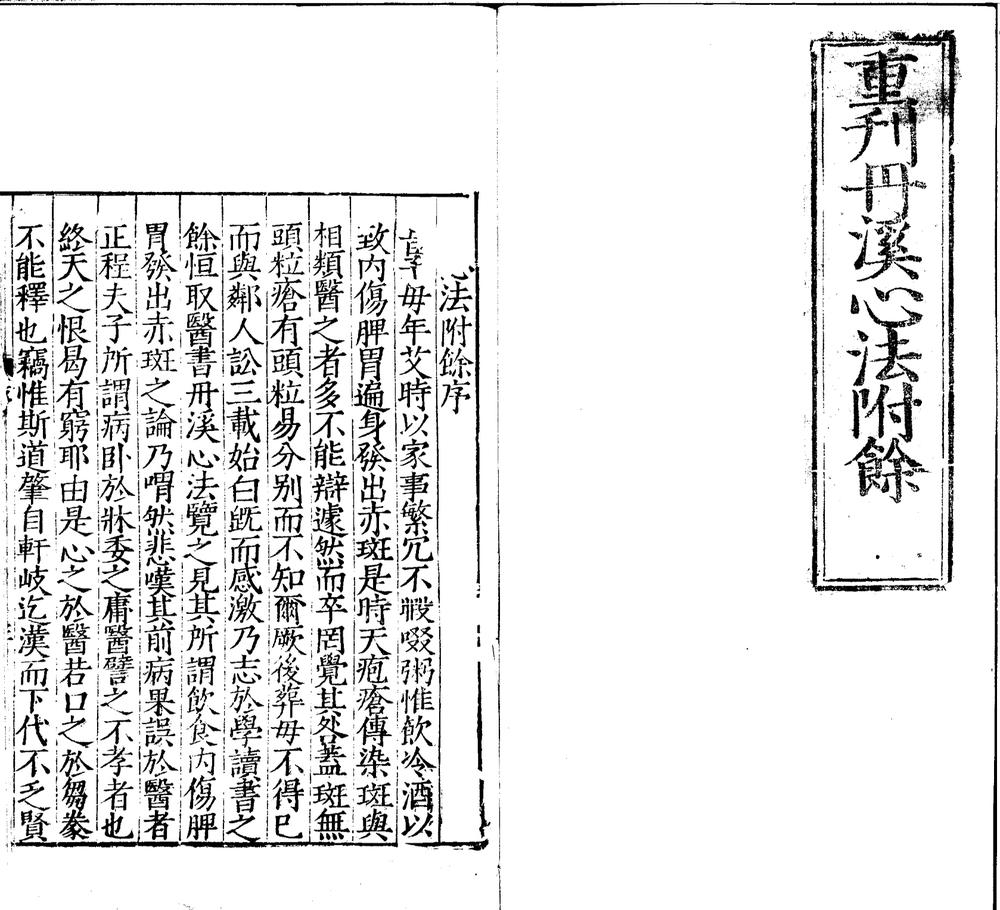 重刋丹溪心法附餘
心法附餘序
毋年艾時以家事繁冗不暇啜粥惟飲冷酒以
致内傷脾胃遍身發出赤斑是時天疱瘡傳染斑與
相類醫之者多不能辯遽然而卒罔覺其咎蓋斑無
頭粒瘡有頭粒易分别而不知爾厥後葬毋不得已
而與鄰人訟三載始白旣而感激乃志於學讀書之
餘恒取醫書丹溪心法覽之見其所謂飲食内傷脾
胃發出赤斑之論乃喟然悲嘆其前病果誤於醫者
正程夫子所謂病卧於牀委之庸醫譬之不孝者也
終天之恨曷有窮耶由是心之於醫若口之於芻豢
不能釋也竊惟斯道肇自軒岐迄漢而下代不乏賢